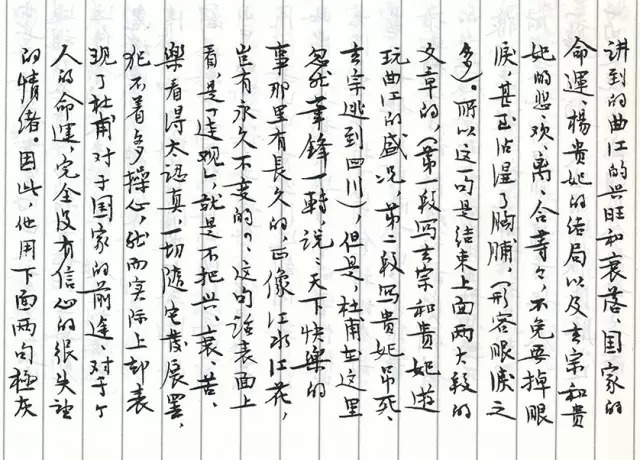 讲到的曲江的兴旺和衰落、国家的
命運、楊贵妃的结局以及玄宗和贵
妃的悲、欢、离、合等々，不免要掉眼
淚，甚至沾湿了胸脯，（形容眼淚之
多）。所以这一句是结束上面两大段的
文章的，（第一段写玄宗和贵妃遊
玩曲江的盛况，第二段写贵妃吊死、
玄宗逃到四川），但是，杜甫在这里
忽然筆鋒一轉，说：“天下快樂的
事那里有長久的，正像江水江花，
岂有永久不变的？”，这句话表面上
看，是「达观」，就是不把兴、衰、苦、
樂看得太認真，一切隨它發展罢，
犯不着多操心，然而实际上却表
现了杜甫对于国家的前途、对于个
人的命運，完全没有信心的很失望
的情绪。因此，他用下面两句極灰